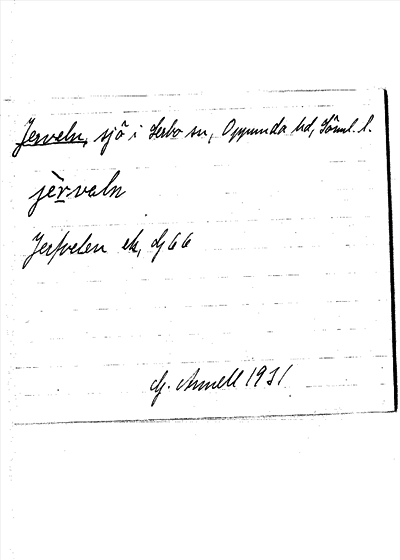 Jerveln, sjö i Lerbo sn, Oppunda hd, Söml. l.
jèrvaln
Jerfvelen ek, dj 66
G. Annell 1931